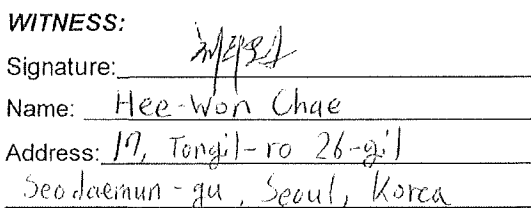 WITNESS:
Signature: 채희원
Name: Hee-Won Chae
Address: 17, Tongil-ro 26-gil
Seodaemun-gu, Seoul, Korea